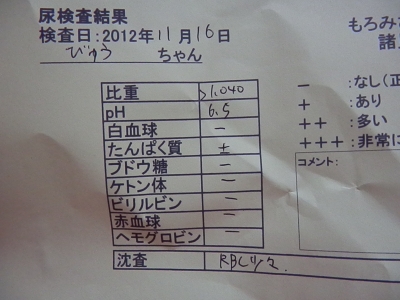 尿検査結果
検査日:2012年11月16日
びゅう ちゃん
比重 >1.040
pH 6.5
白血球 －
たんぱく質 ±
ブドウ糖 －
ケトン体 －
ビリルビン －
赤血球 －
ヘモグロビン －
沈査 RBC少々
もろみ
諸
－ :なし(正
+ :あり
++ :多い
+++ :非常に
コメント: